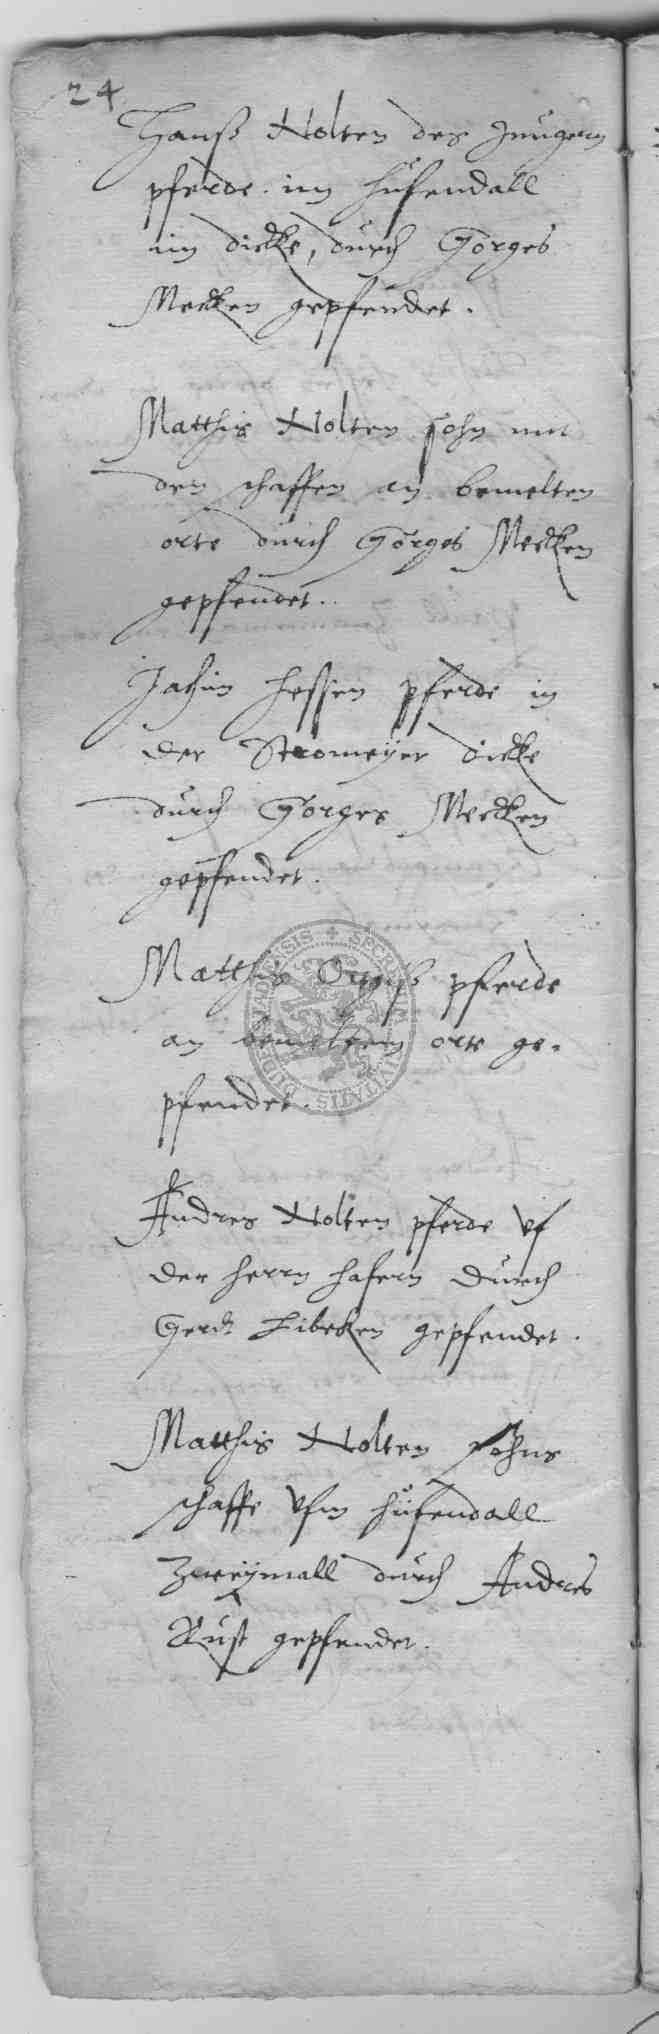 24
Hanß Nolten des Jungern
pferde im hufendall
im dicke, durch Görges
Mecken gepfendet.
Matthis Nolten sohn mit
den schaffen an bemelten
orte durch Görges Mecken
gepfendet.
Jachim hessen pferde in
der Stromeyer dicke
durch Görges Mecken
gepfendet.
Matthis pferde
an bemeltem orte ge-
pfendet.
Andres Nolten pferde vf
der herrn hafern durch
Gerdt Libeken gepfendet.
Matthis Nolten sohns
schaffe vfm hufendall
zweymall durch Andres
Rust gepfendet.
SECRET CIVITATIS DUDERSTADENSIS